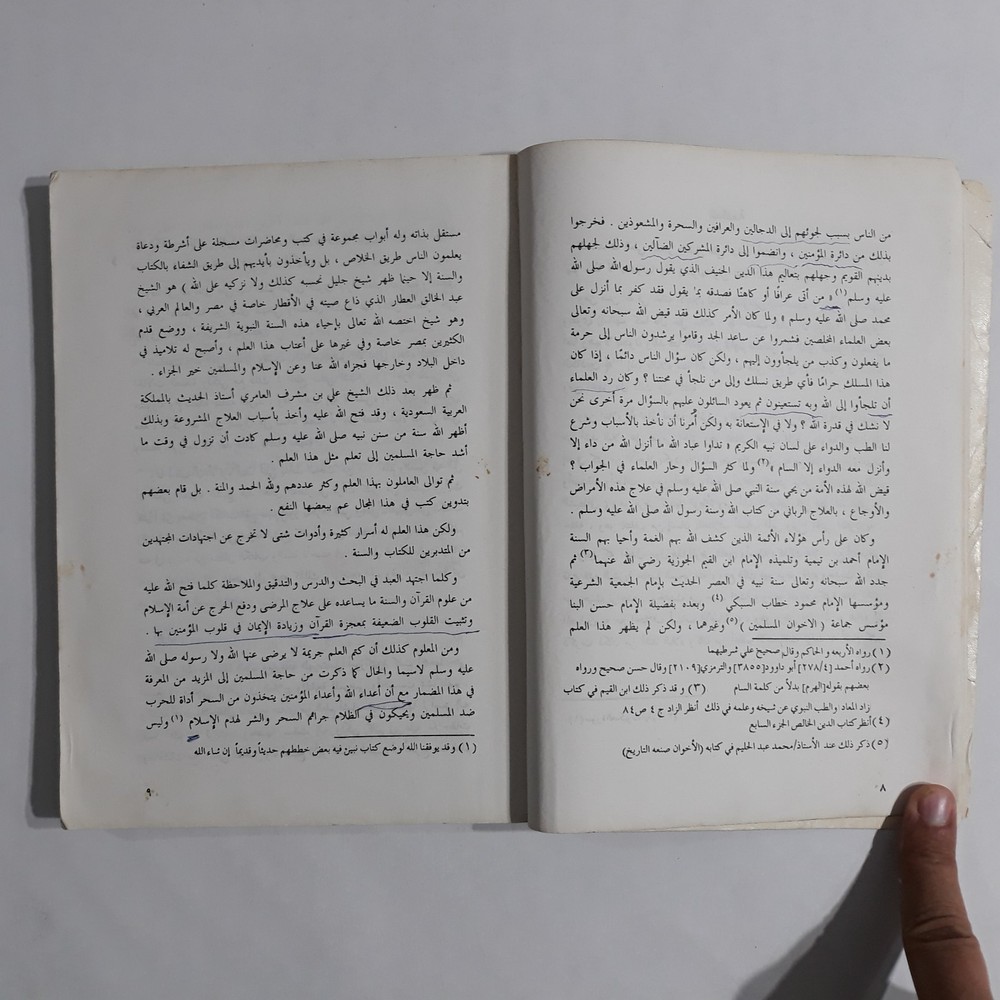 من الناس بسبب لجوئهم إلى الدجالين والعرافين والسحرة والمشعوذين . فخرجوا
بذلك من دائرة المؤمنين ، وانضموا إلى دائرة المشركين الضآلين ، وذلك لجهلهم
بدينهم القويم وجهلهم بتعاليم هذا الدين الحنيف الذي يقول رسول الله صلى الله
عليه وسلم(١) « من أتى عرافًا أو كاهنًا فصدقه بما يقول فقد كفر بما أنزل على
محمد صلى الله عليه وسلم » ولما كان الأمر كذلك فقد قيض الله سبحانه وتعالى
بعض العلماء المخلصين فشمروا عن ساعد الجد وقاموا يرشدون الناس إلى حرمة
ما يفعلون وكذب من يلجأوون إليهم ، ولكن كان سؤال الناس دائمًا ، إذا كان
هذا المسلك حرامًا فأي طريق نسلك وإلى من نلجأ في محنتنا ؟ وكان رد العلماء
أن تلجأوا إلى الله وبه تستعينون ثم يعود السائلون عليهم بالسؤال مرة أخرى نحن
لا نشك في قدرة الله ؟ ولا في الإستعانة به ولكن أُمرنا أن نأخذ بالأسباب وشرع
لنا الطب والدواء على لسان نبيه الكريم « تداوا عباد الله ما أنزل الله من داء إلا
وأنزل معه الدواء إلا السام »(٢) ولما كثر السؤال وحار العلماء في الجواب ؟
قيض الله لهذه الأمة من يحي سنة النبي صلى الله عليه وسلم في علاج هذه الأمراض
والأوجاع ، بالعلاج الرباني من كتاب الله وسنة رسول الله صلى الله عليه وسلم .
وكان على رأس هؤلاء الأئمة الذين كشف الله بهم الغمة وأحيا بهم السنة
الإمام أحمد بن تيمية وتلميذه الإمام ابن القيم الجوزية رضي الله عنهما(٣) ثم
جدد الله سبحانه وتعالى سنة نبيه في العصر الحديث بإمام الجمعية الشرعية
ومؤسسها الإمام محمود خطاب السبكي (٤) وبعده بفضيلة الإمام حسن البنا
مؤسس جماعة ( الاخوان المسلمين )(٥) وغيرهما ، ولكن لم يظهر هذا العلم
(١) رواه الأربعه و الحاكم وقال صحيح علي شرطيهما
(٢) رواه أحمد [٢٧٨/٤] أبو داوود[٣٨٥٥] والترمزي[٢١٠٩] وقال حسن صحيح ورواه
بعضهم بقوله[الهرم] بدلاً من كلمة السام (٣) و قد ذكر ذلك ابن القيم في كتاب
زاد المعاد والطب النبوي عن شيخه وعلمه في ذلك أنظر الزاد ج ٤ ص٨٤
(٤) أنظر كتاب الدين الخالص الجزء السابع
(٥) ذكر ذلك عند الأستاذ/محمد عبد الحليم في كتابه (الأخوان صنعه التاريخ)
٨
مستقل بذاته وله أبواب مجموعة في كتب ومحاضرات مسجلة على أشرطة ودعاة
يعلمون الناس طريق الخلاص ، بل ويأخذون بأيديهم إلى طريق الشفاء بالكتاب
والسنة إلا حينما ظهر شيخ جليل نحسبه كذلك ولا نزكيه على الله ) هو الشيخ
عبد الخالق العطار الذي ذاع صيته في الأقطار خاصة في مصر والعالم العربي ،
وهو شيخ اختصه الله تعالى بإحياء هذه السنة النبوية الشريفة ، ووضع قدم
الكثيرين بمصر خاصة وفي غيرها على أعتاب هذا العلم ، وأصبح له تلاميذ في
داخل البلاد وخارجها فجزاه الله عنا وعن الإسلام والمسلمين خير الجزاء .
ثم ظهر بعد ذلك الشيخ علي بن مشرف العامري أستاذ الحديث بالمملكة
العربية السعودية ، وقد فتح الله عليه وأخذ بأسباب العلاج المشروعة وبذلك
أظهر الله سنة من سنن نبيه صلى الله عليه وسلم كادت أن تزول في وقت ما
أشد حاجة المسلمين إلى تعلم مثل هذا العلم .
ثم توالى العاملون بهذا العلم وكثر عددهم ولله الحمد والمنة . بل قام بعضهم
بتدوين كتب في هذا المجال عم ببعضها النفع .
ولكن هذا العلم له أسرار كثيرة وأدوات شتى لا تخرج عن اجتهادات المجتهدين
من المتدبرين للكتاب والسنة .
وكلما اجتهد العبد في البحث والدرس والتدقيق والملاحظة كلما فتح الله عليه
من علوم القرآن والسنة ما يساعده على علاج المرضى ودفع الحرج عن أمة الإسلام
وتثبيت القلوب الضعيفة بمعجزة القرآن وزيادة الإيمان في قلوب المؤمنين بها .
ومن المعلوم كذلك أن كتم العلم جريمة لا يرضى عنها الله ولا رسوله صلى الله
عليه وسلم لاسيما والحال كما ذكرت من حاجة المسلمين إلى المزيد من المعرفة
في هذا المضمار مع أن أعداء الله وأعداء المؤمنين يتخذون من السحر أداة للحرب
ضد المسلمين ويحيكون في الظلام جرائم السحر والشر لهدم الإسلام (١) وليس
(١) وقد يوفقنا الله لوضع كتاب نبين فيه بعض خططهم حديثاً وقديماً إن شاء الله
٩